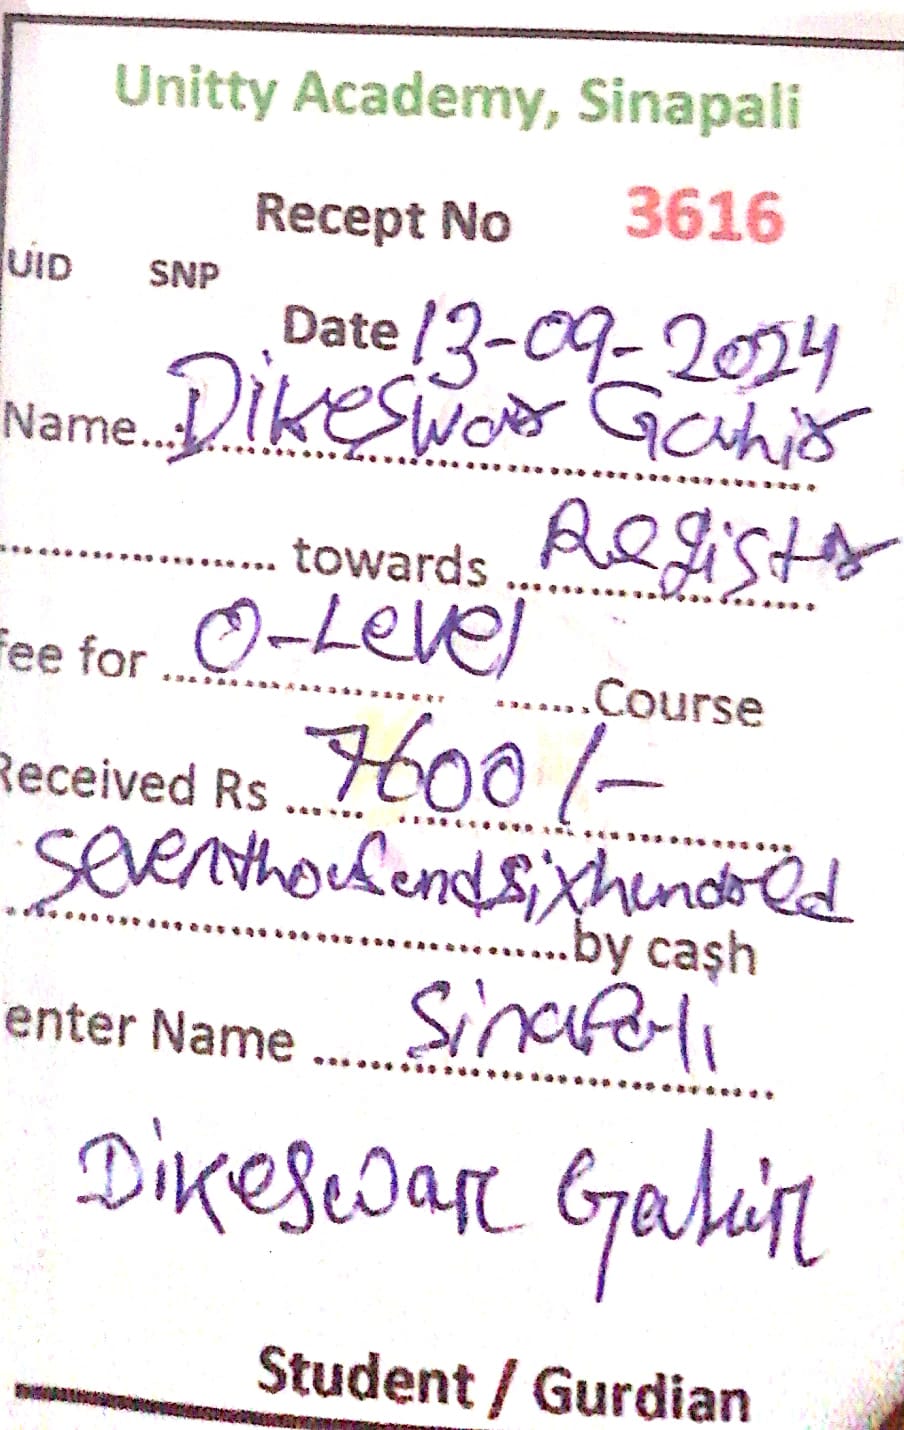 Unitty Academy, Sinapali
Recept No 3616
UID SNP
Date 13-09-2024
Name....Dikeswar Gahir
.................... towards ....Registr
fee for ....O-Level.... .......Course
Received Rs ....7600/-
Seventhousendsixhundred
....................by cash
enter Name ....Sinapali
Dikeswar Gahir
Student / Gurdian